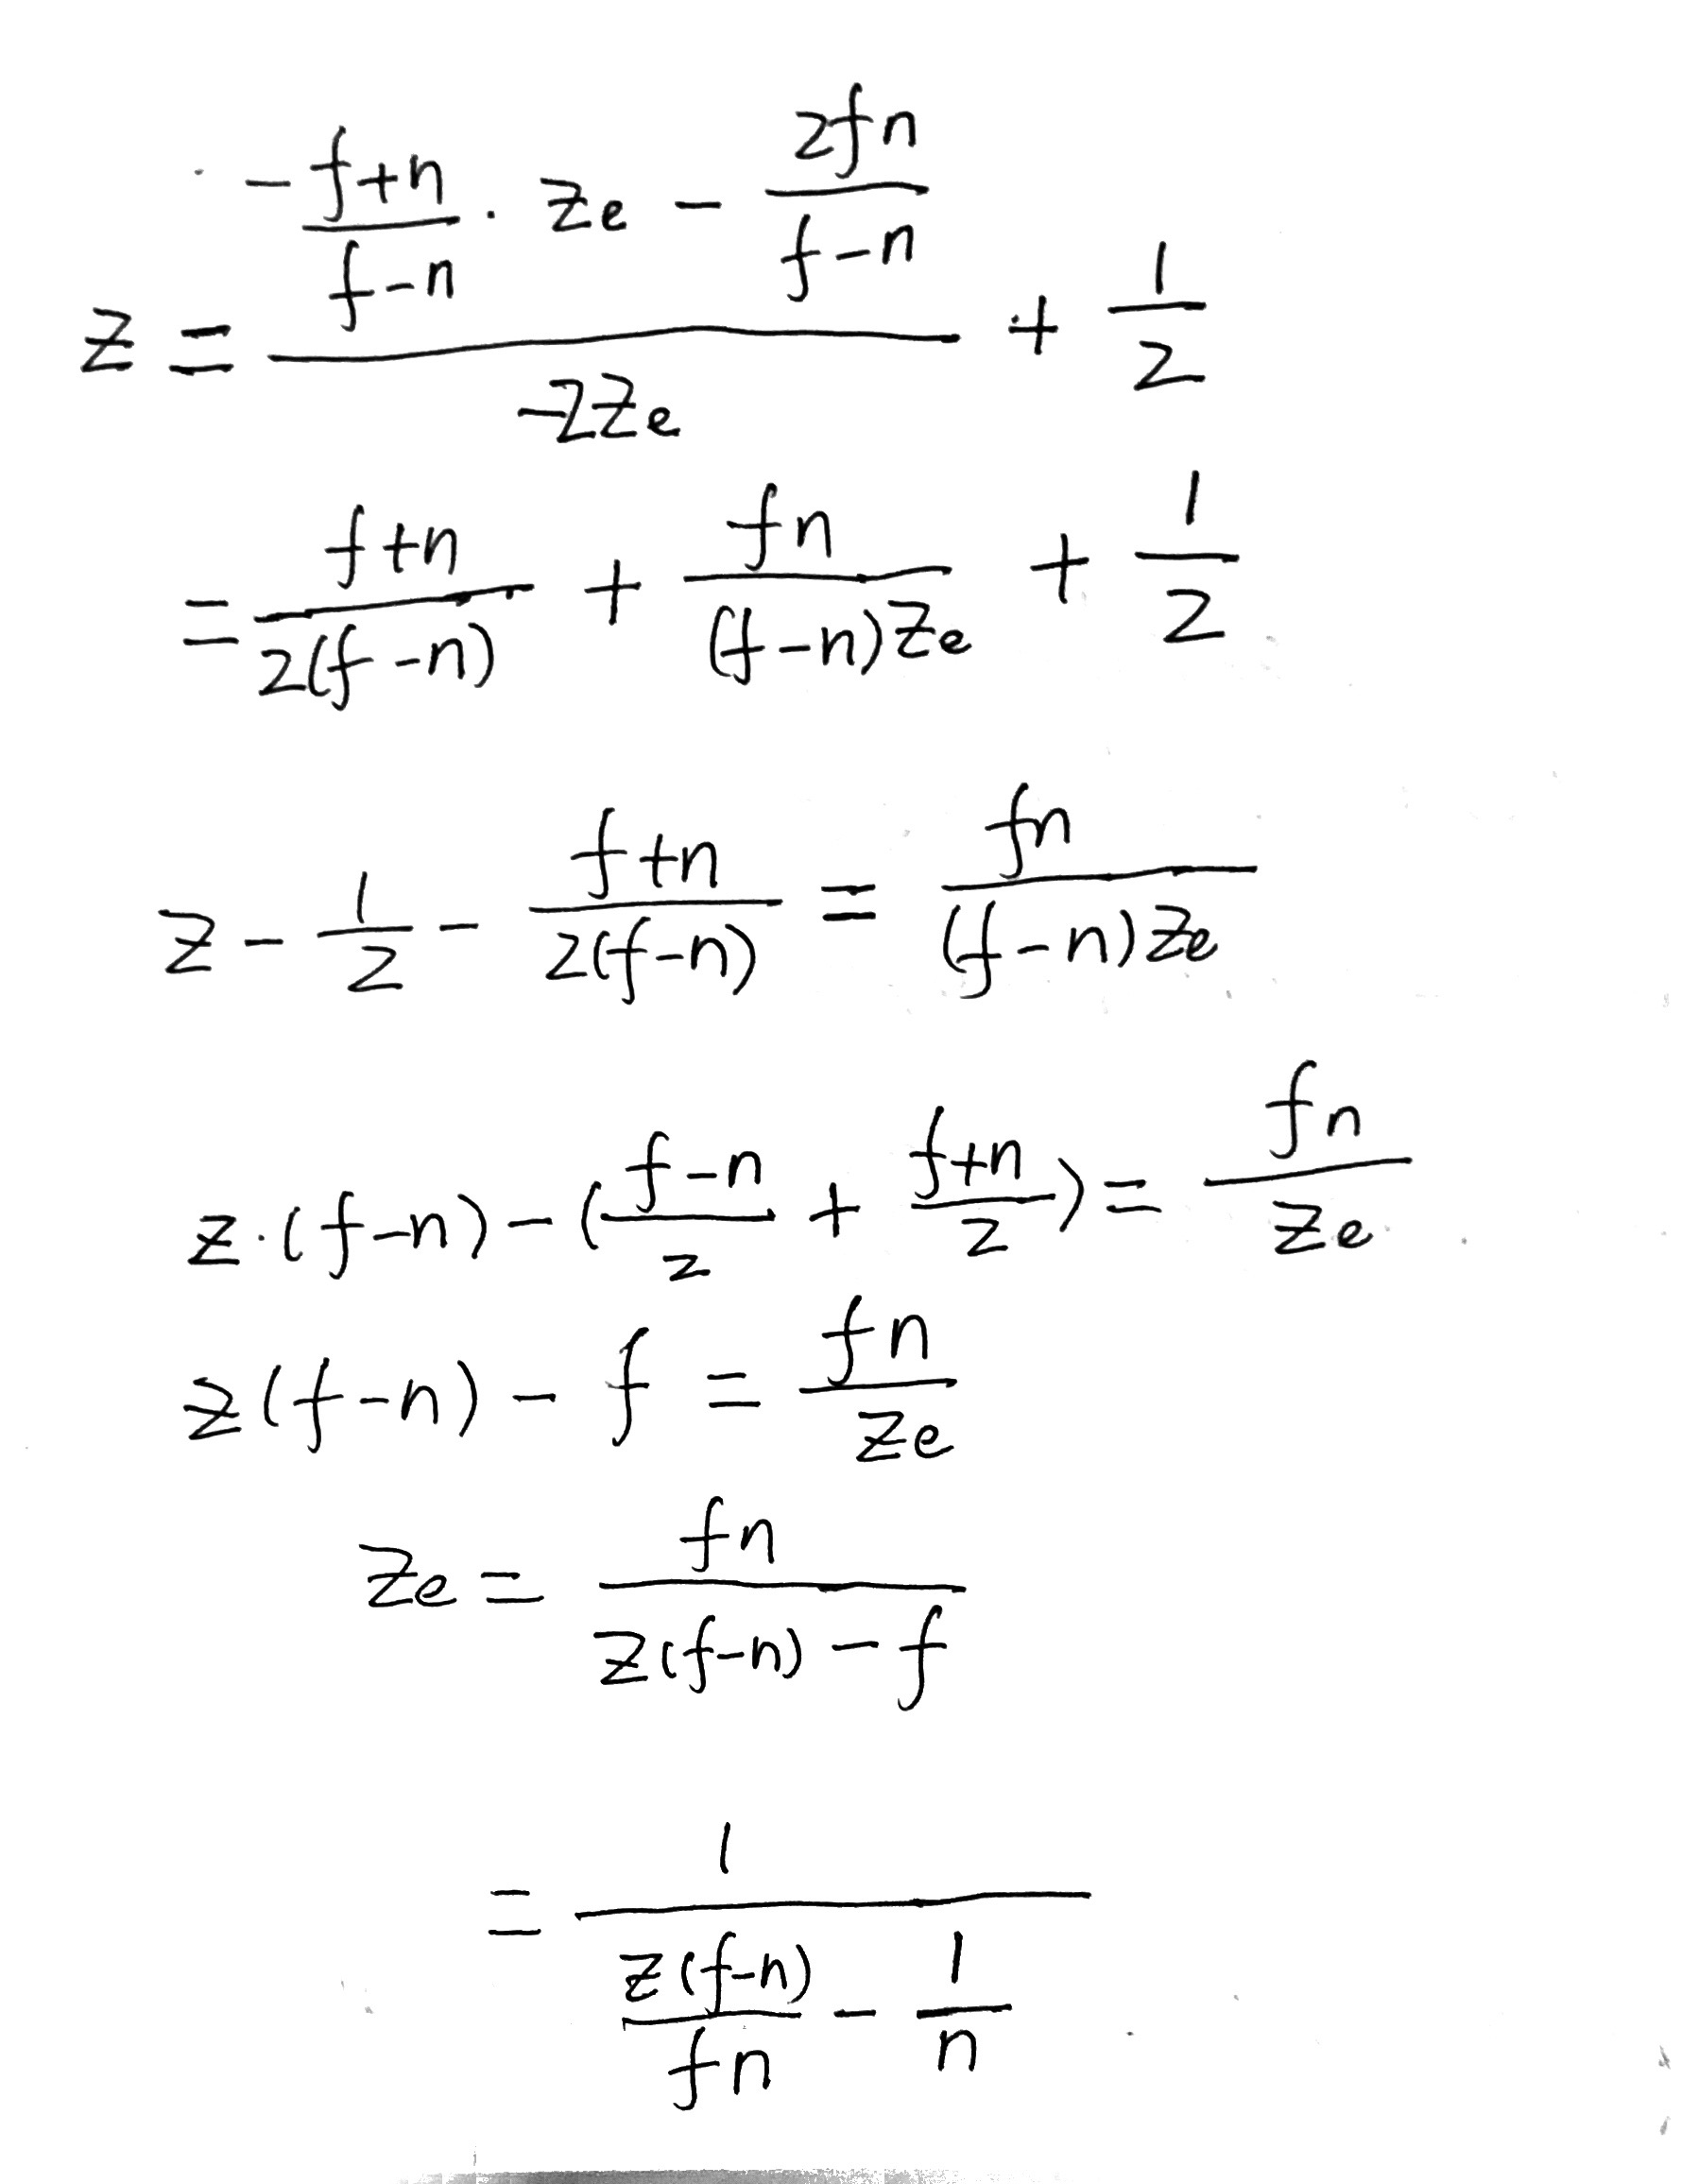 z = (-\frac{f+n}{f-n} · z_e - \frac{2fn}{f-n}) / (-2z_e) + \frac{1}{2}
= \frac{f+n}{2(f-n)} + \frac{fn}{(f-n)z_e} + \frac{1}{2}
z - \frac{1}{2} - \frac{f+n}{2(f-n)} = \frac{fn}{(f-n)z_e}
z·(f-n) - (\frac{f-n}{2} + \frac{f+n}{2}) = \frac{fn}{z_e}
z(f-n) - f = \frac{fn}{z_e}
z_e = \frac{fn}{z(f-n) - f}
= \frac{1}{\frac{z(f-n)}{fn} - \frac{1}{n}}